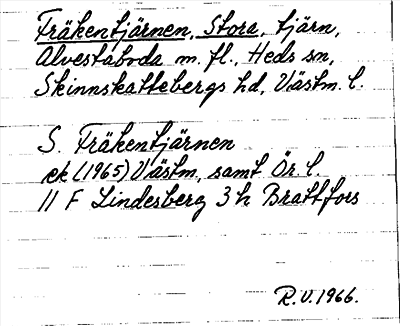 Fräkentjärnen, Stora, tjärn,
Alvestaboda m. fl., Heds sn,
Skinnskattebergs hd, Västm. l.
S. Fräkentjärnen
ek (1965) Västm, samt Ör. l.
11 F Lindesberg 3 h Brattfors
R.V. 1966.